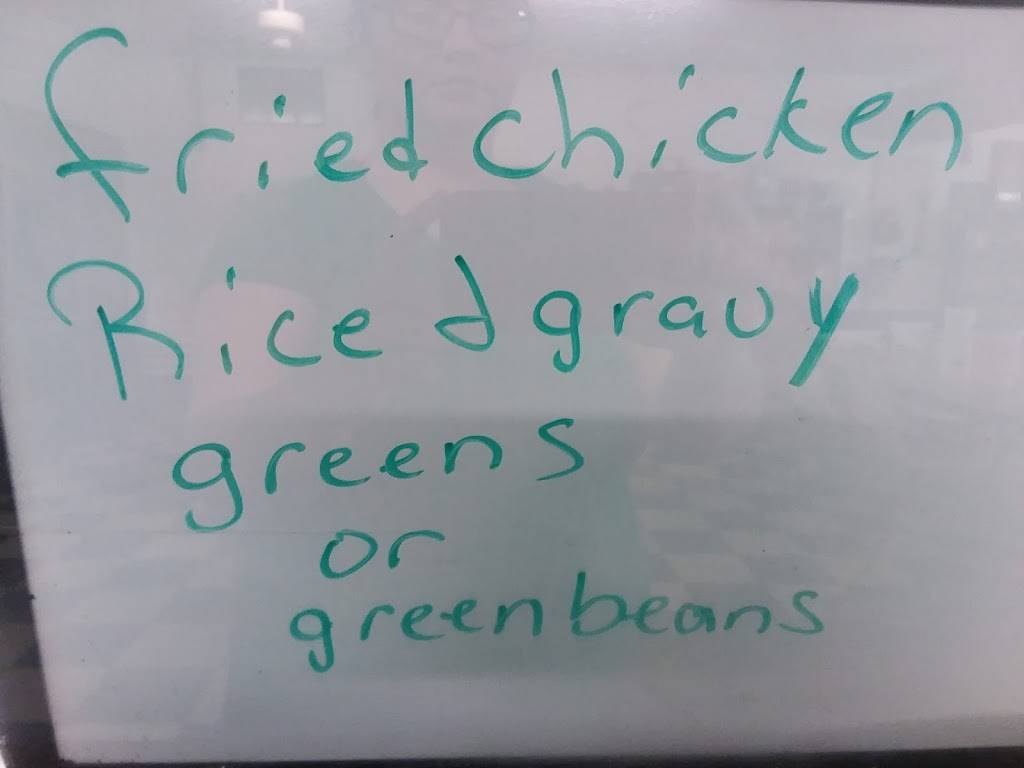 fried chicken
Rice & gravy
greens
or
green beans